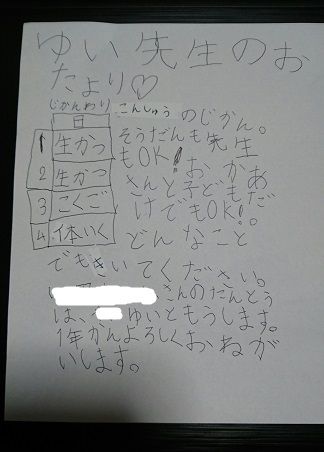 ゆい先生のお
たより♡
じかんわり こんしゅうのじかん。
日
1 生かつ
2 生かつ
3 こくご
4 体いく
そうだんも先生
もOK! おかあ
さんと子どもだ
けでもOK!。
どんなこと
でもきいてください。
さんのたんとう
は、ゆいともうします。
1年かんよろしくおねが
いします。